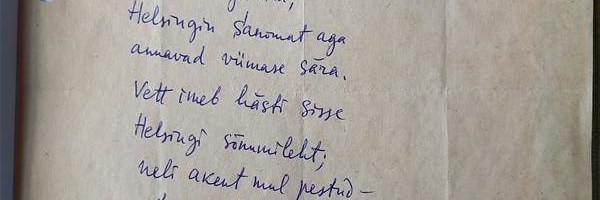 Helsingin Sanomat aga
annavad viimase sära.
Vett imeb hästi sisse
Helsingi sõnumileht;
neli akent mul pestud –